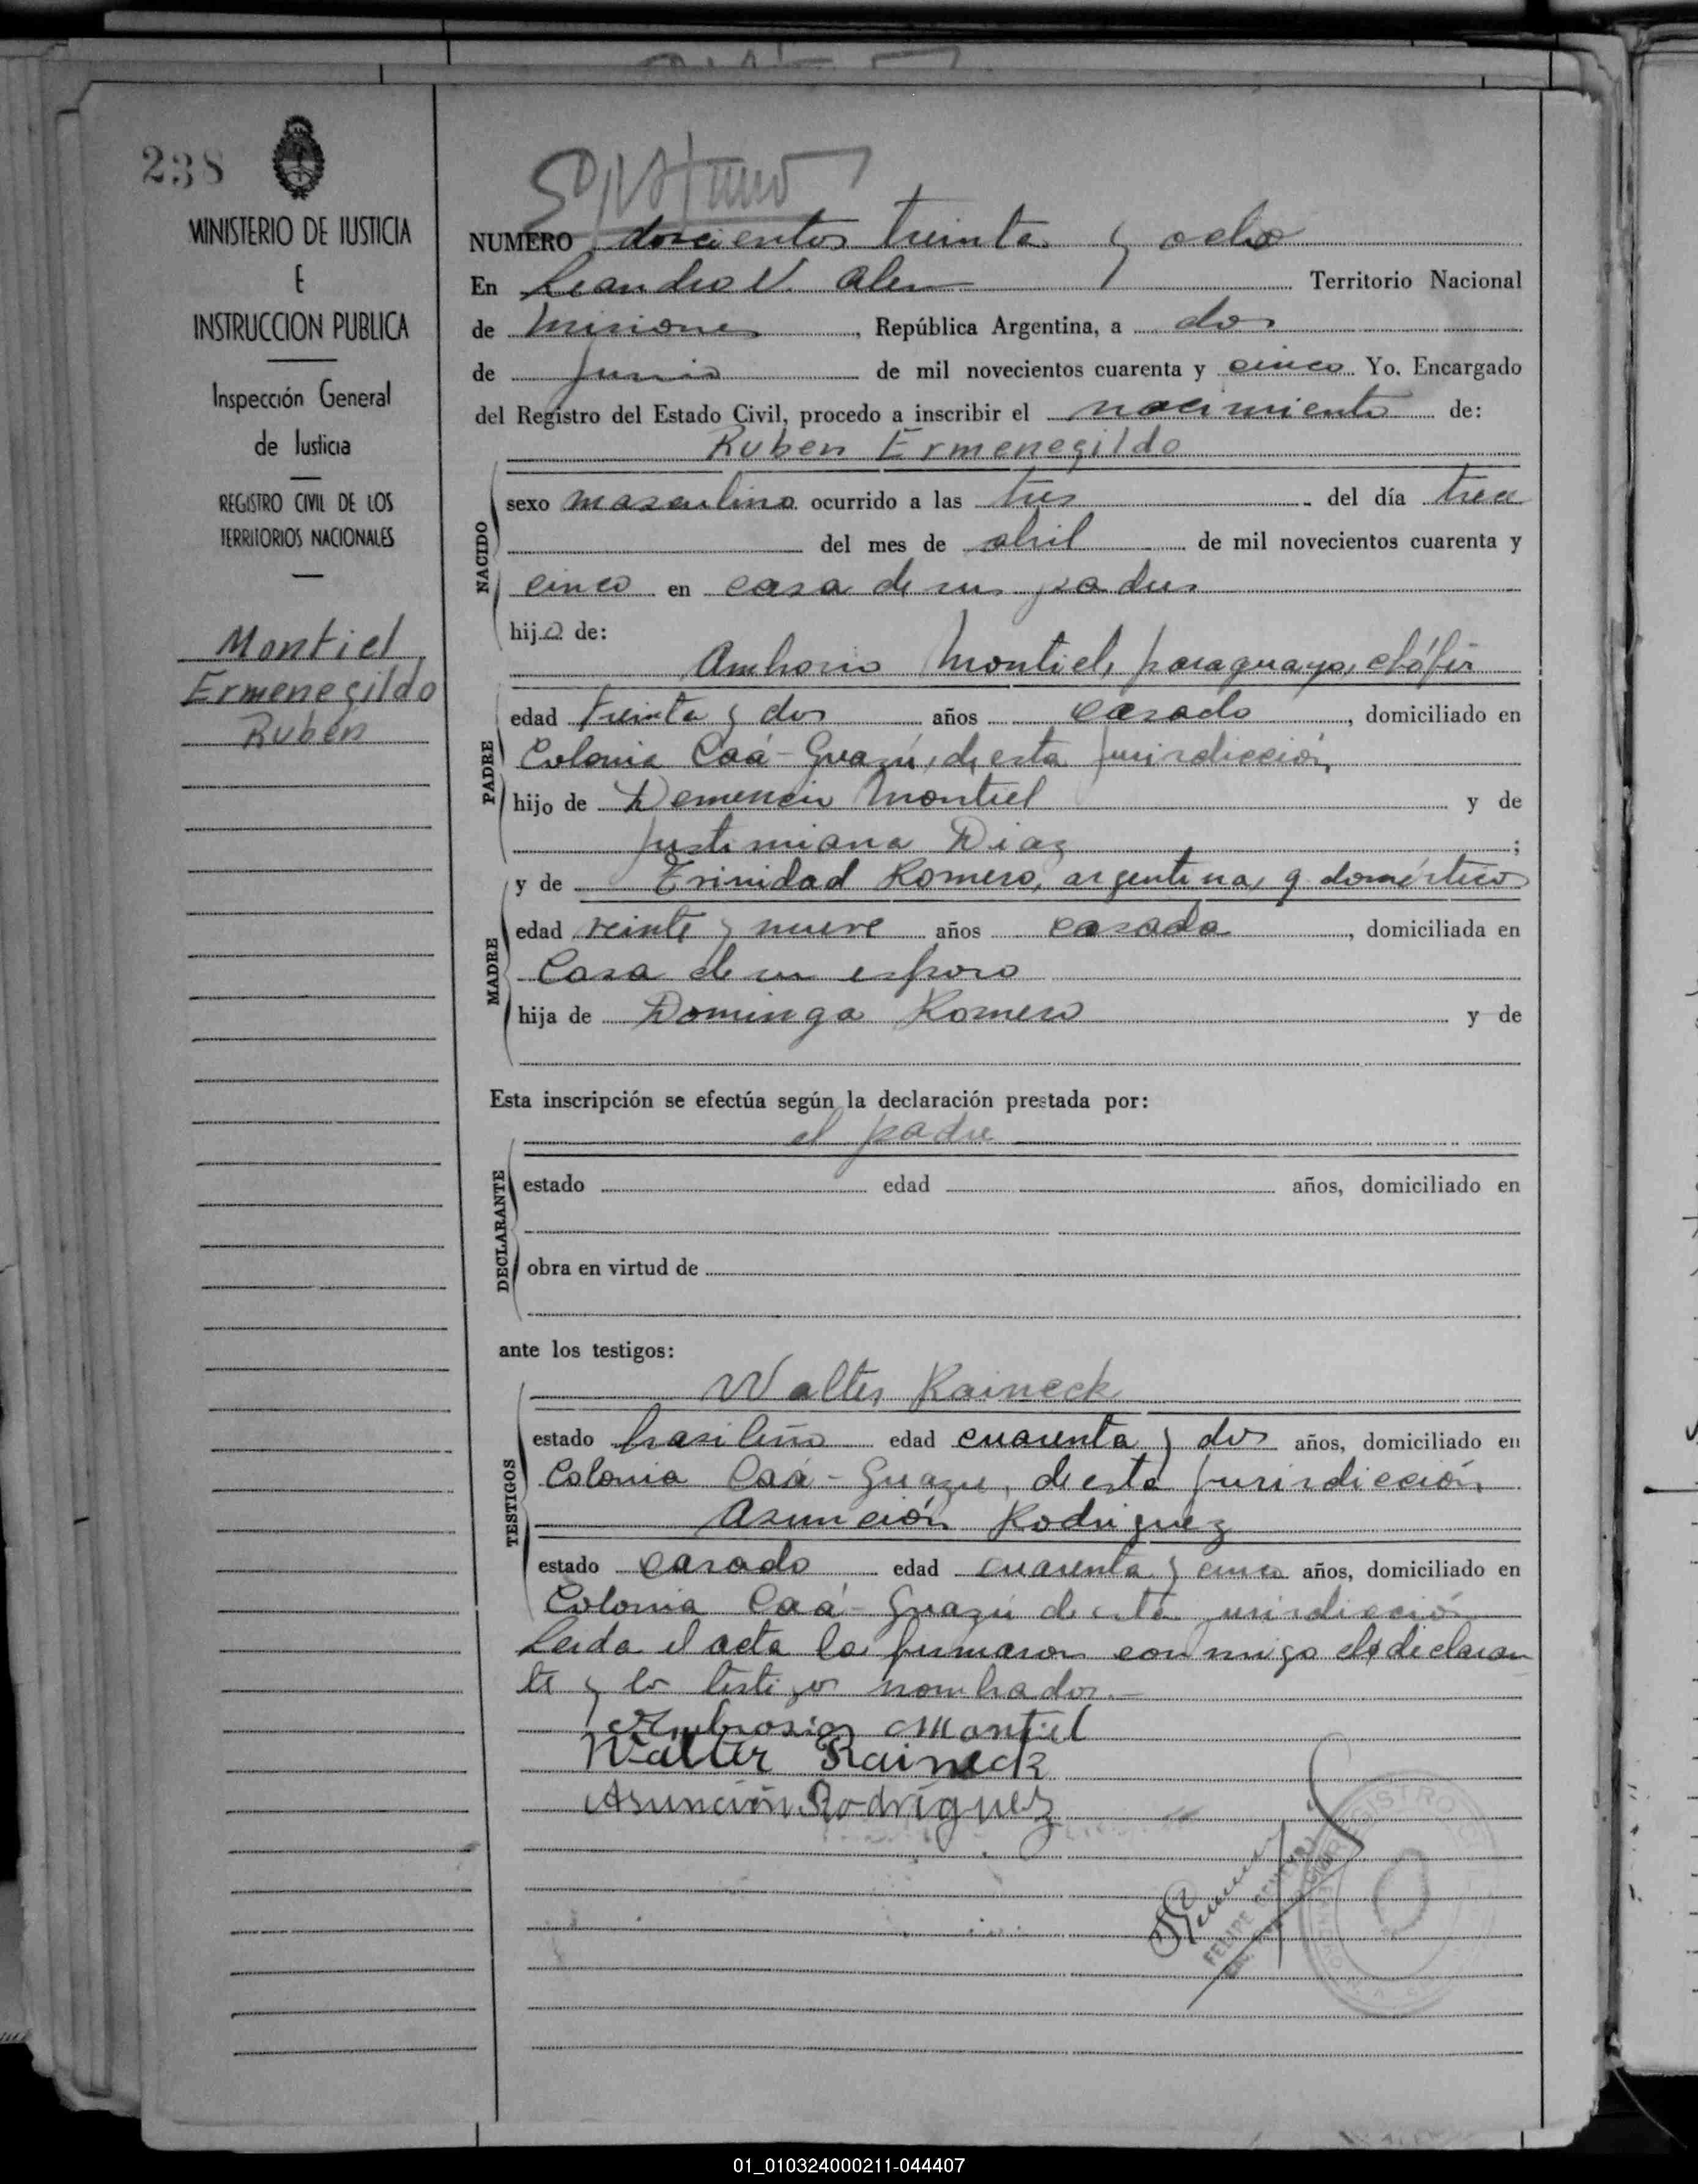 238
MINISTERIO DE JUSTICIA
E
INSTRUCCION PUBLICA
Inspección General
de Justicia
REGISTRO CIVIL DE LOS
TERRITORIOS NACIONALES
Montiel
Ermenegildo
Ruben
NUMERO doscientos treinta y ocho
En Leandro N. Alem Territorio Nacional
de Misiones, República Argentina, a dos
de Junio de mil novecientos cuarenta y cinco Yo. Encargado
del Registro del Estado Civil, procedo a inscribir el nacimiento de:
Ruben Ermenegildo
NACIDO
sexo masculino ocurrido a las tres del día trece
del mes de abril de mil novecientos cuarenta y
cinco en casa de sus padres
hijo de:
Ambrosio Montiel, paraguayo,
PADRE
edad treinta y dos años casado, domiciliado en
Colonia Caá-Guazú, de esta jurisdicción
hijo de Montiel y de
Justiniana Diaz;
y de Trinidad Romero, argentina, q. domésticos
MADRE
edad veinte y nueve años casada, domiciliada en
Casa de su esposo
hija de Dominga Romero y de
Esta inscripción se efectúa según la declaración prestada por:
el padre
DECLARANTE
estado edad años, domiciliado en
obra en virtud de
ante los testigos:
Walter Raineck
TESTIGOS
estado brasileño edad cuarenta y dos años, domiciliado en
Colonia Caá-Guazu, de esta jurisdicción,
Asunción Rodriguez
estado casado edad cuarenta y cinco años, domiciliado en
Colonia Caá-Guazú de esta jurisdicción
Leida el acta la firmaron conmigo el declaran
te y los testigos nombrados.-
Ambrosio Montiel
Walter Raineck
Asunción Rodríguez
FELIPE
REGISTRO
01_010324000211-044407